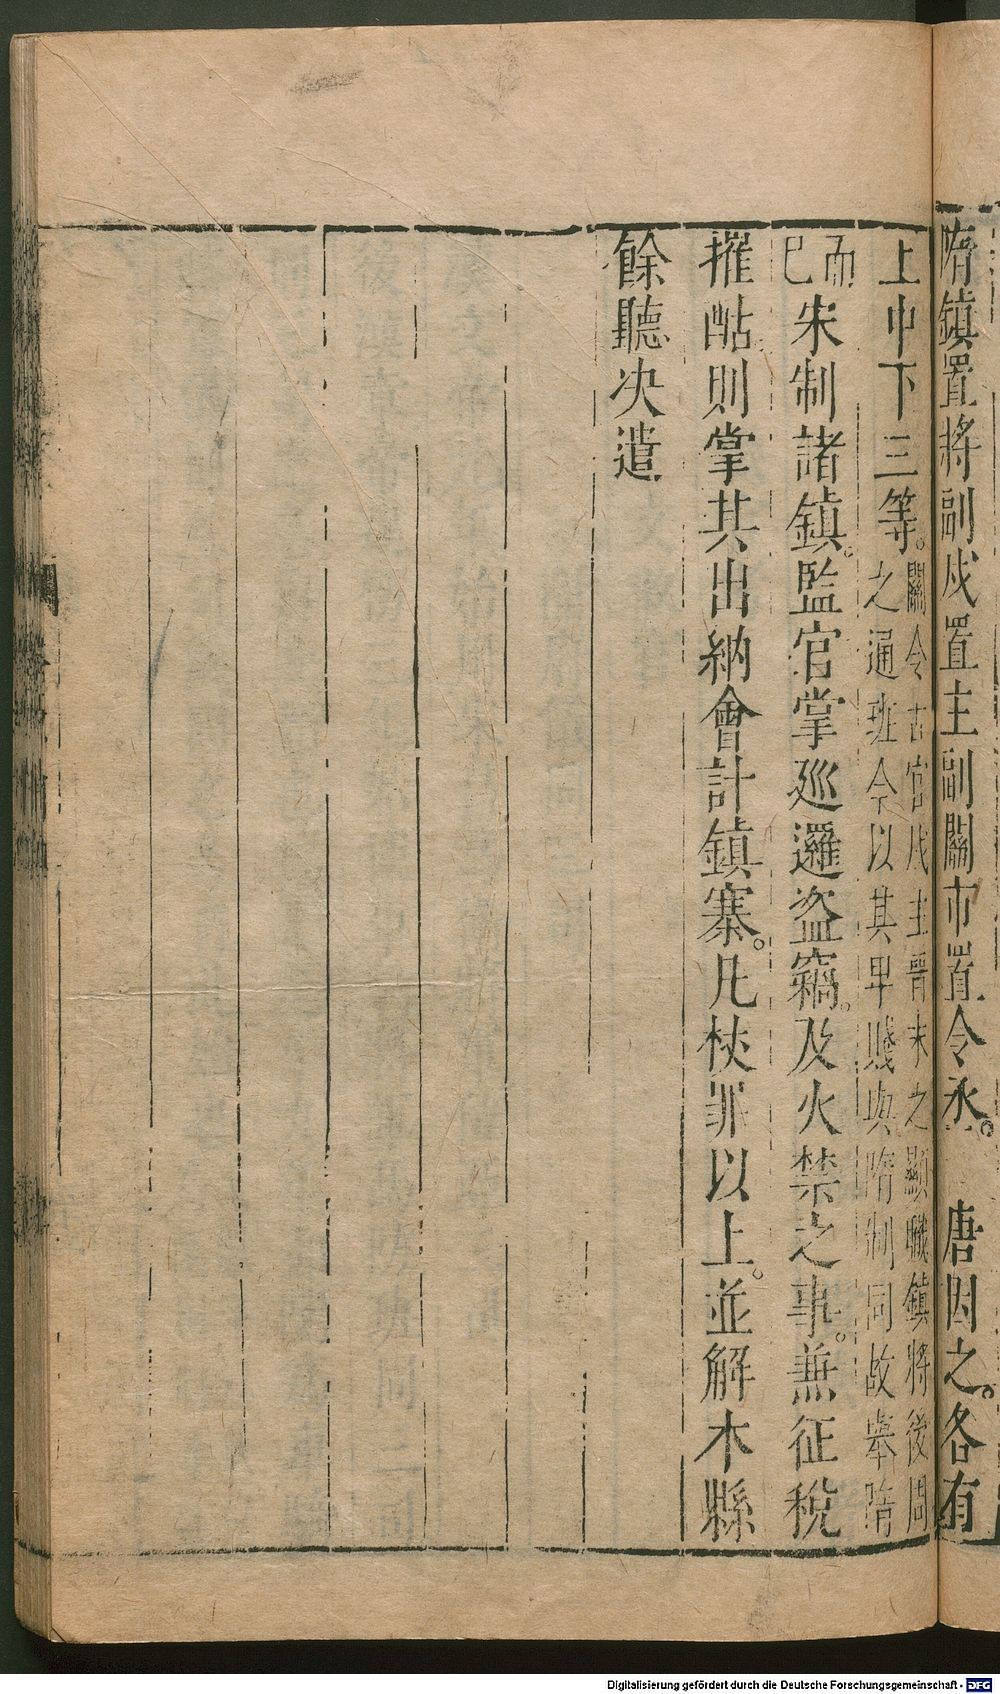 隋鎮置將副戍置主副關市置令丞。 唐因之。各有
上中下三等。關令古官戍主晉末之顯職鎮將後周
之通班今以其卑賤與隋制同故舉隋
而
已宋制諸鎮。監官掌巡邏盜竊。及火禁之事。兼征稅
搉酤則掌其出納會計鎮寨。凡杖罪以上。並解本縣
餘聽决遣
Digitalisierung gefördert durch die Deutsche Forschungsgemeinschaft - DFG